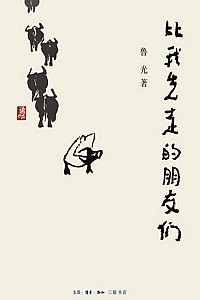 比我先走的朋友们
鲁光 著
生活·讀書·新知 三联书店